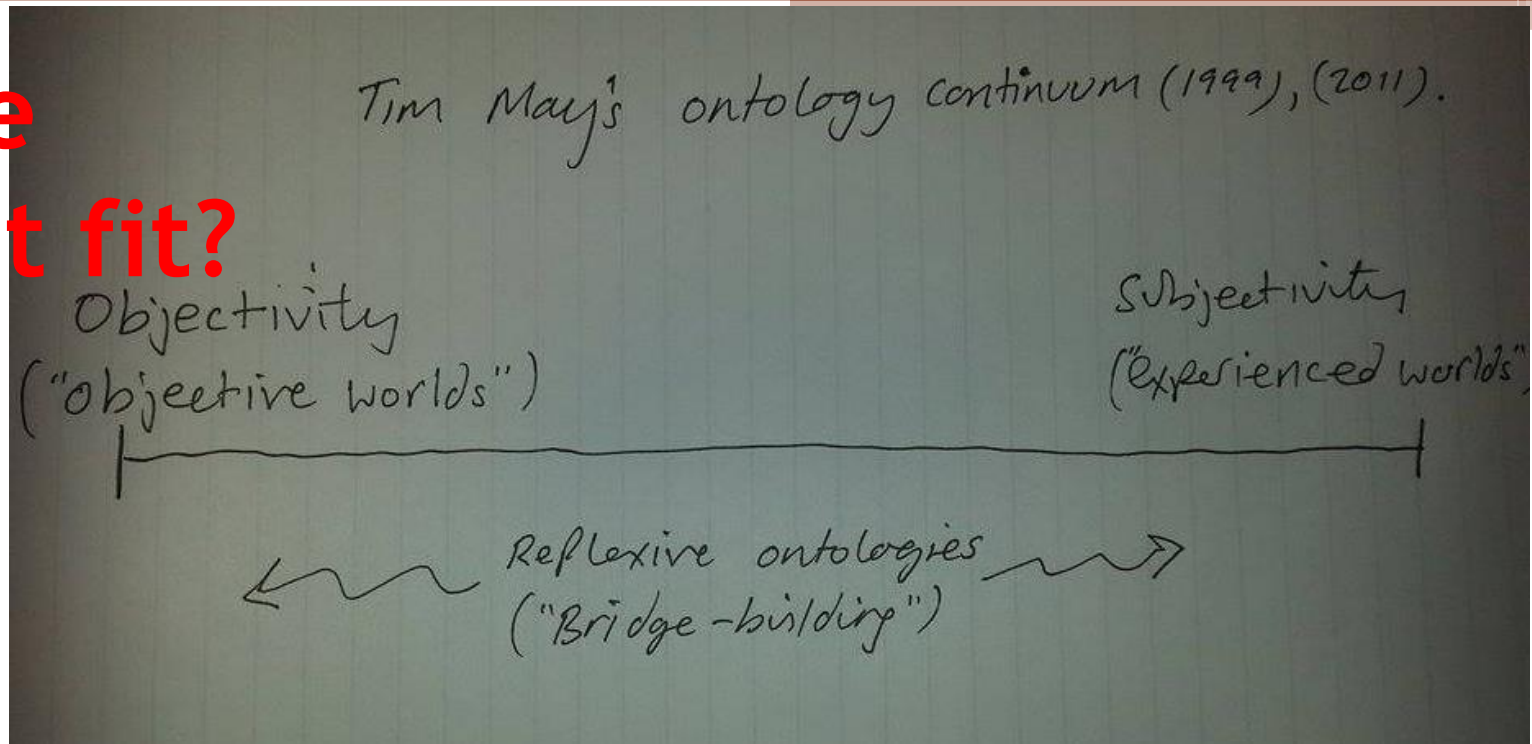 Tim May's ontology continuum (1999), (2011).
e
t fit?
Objectivity
("objective worlds")
Subjectivity
("experienced worlds"
Reflexive ontologies
("Bridge-building")